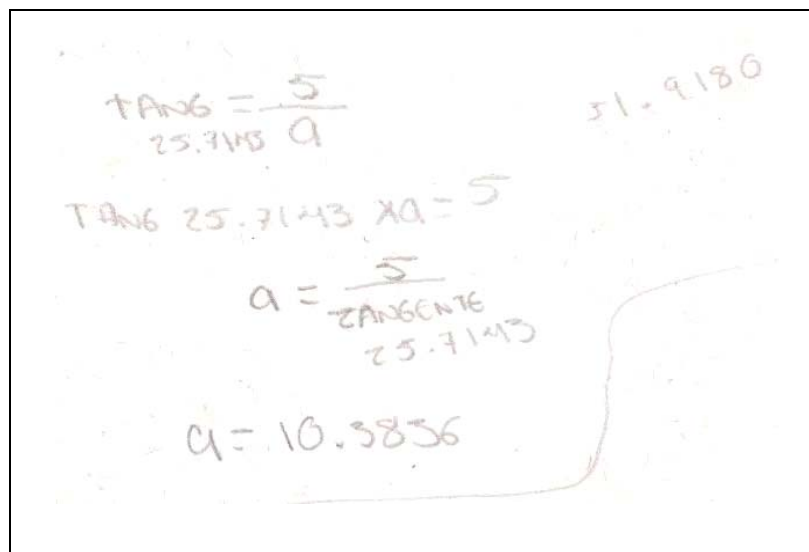 TANG = 5 / a
25.7143
51.9180
TANG 25.7143 x a = 5
a = 5 / TANGENTE
25.7143
a = 10.3836